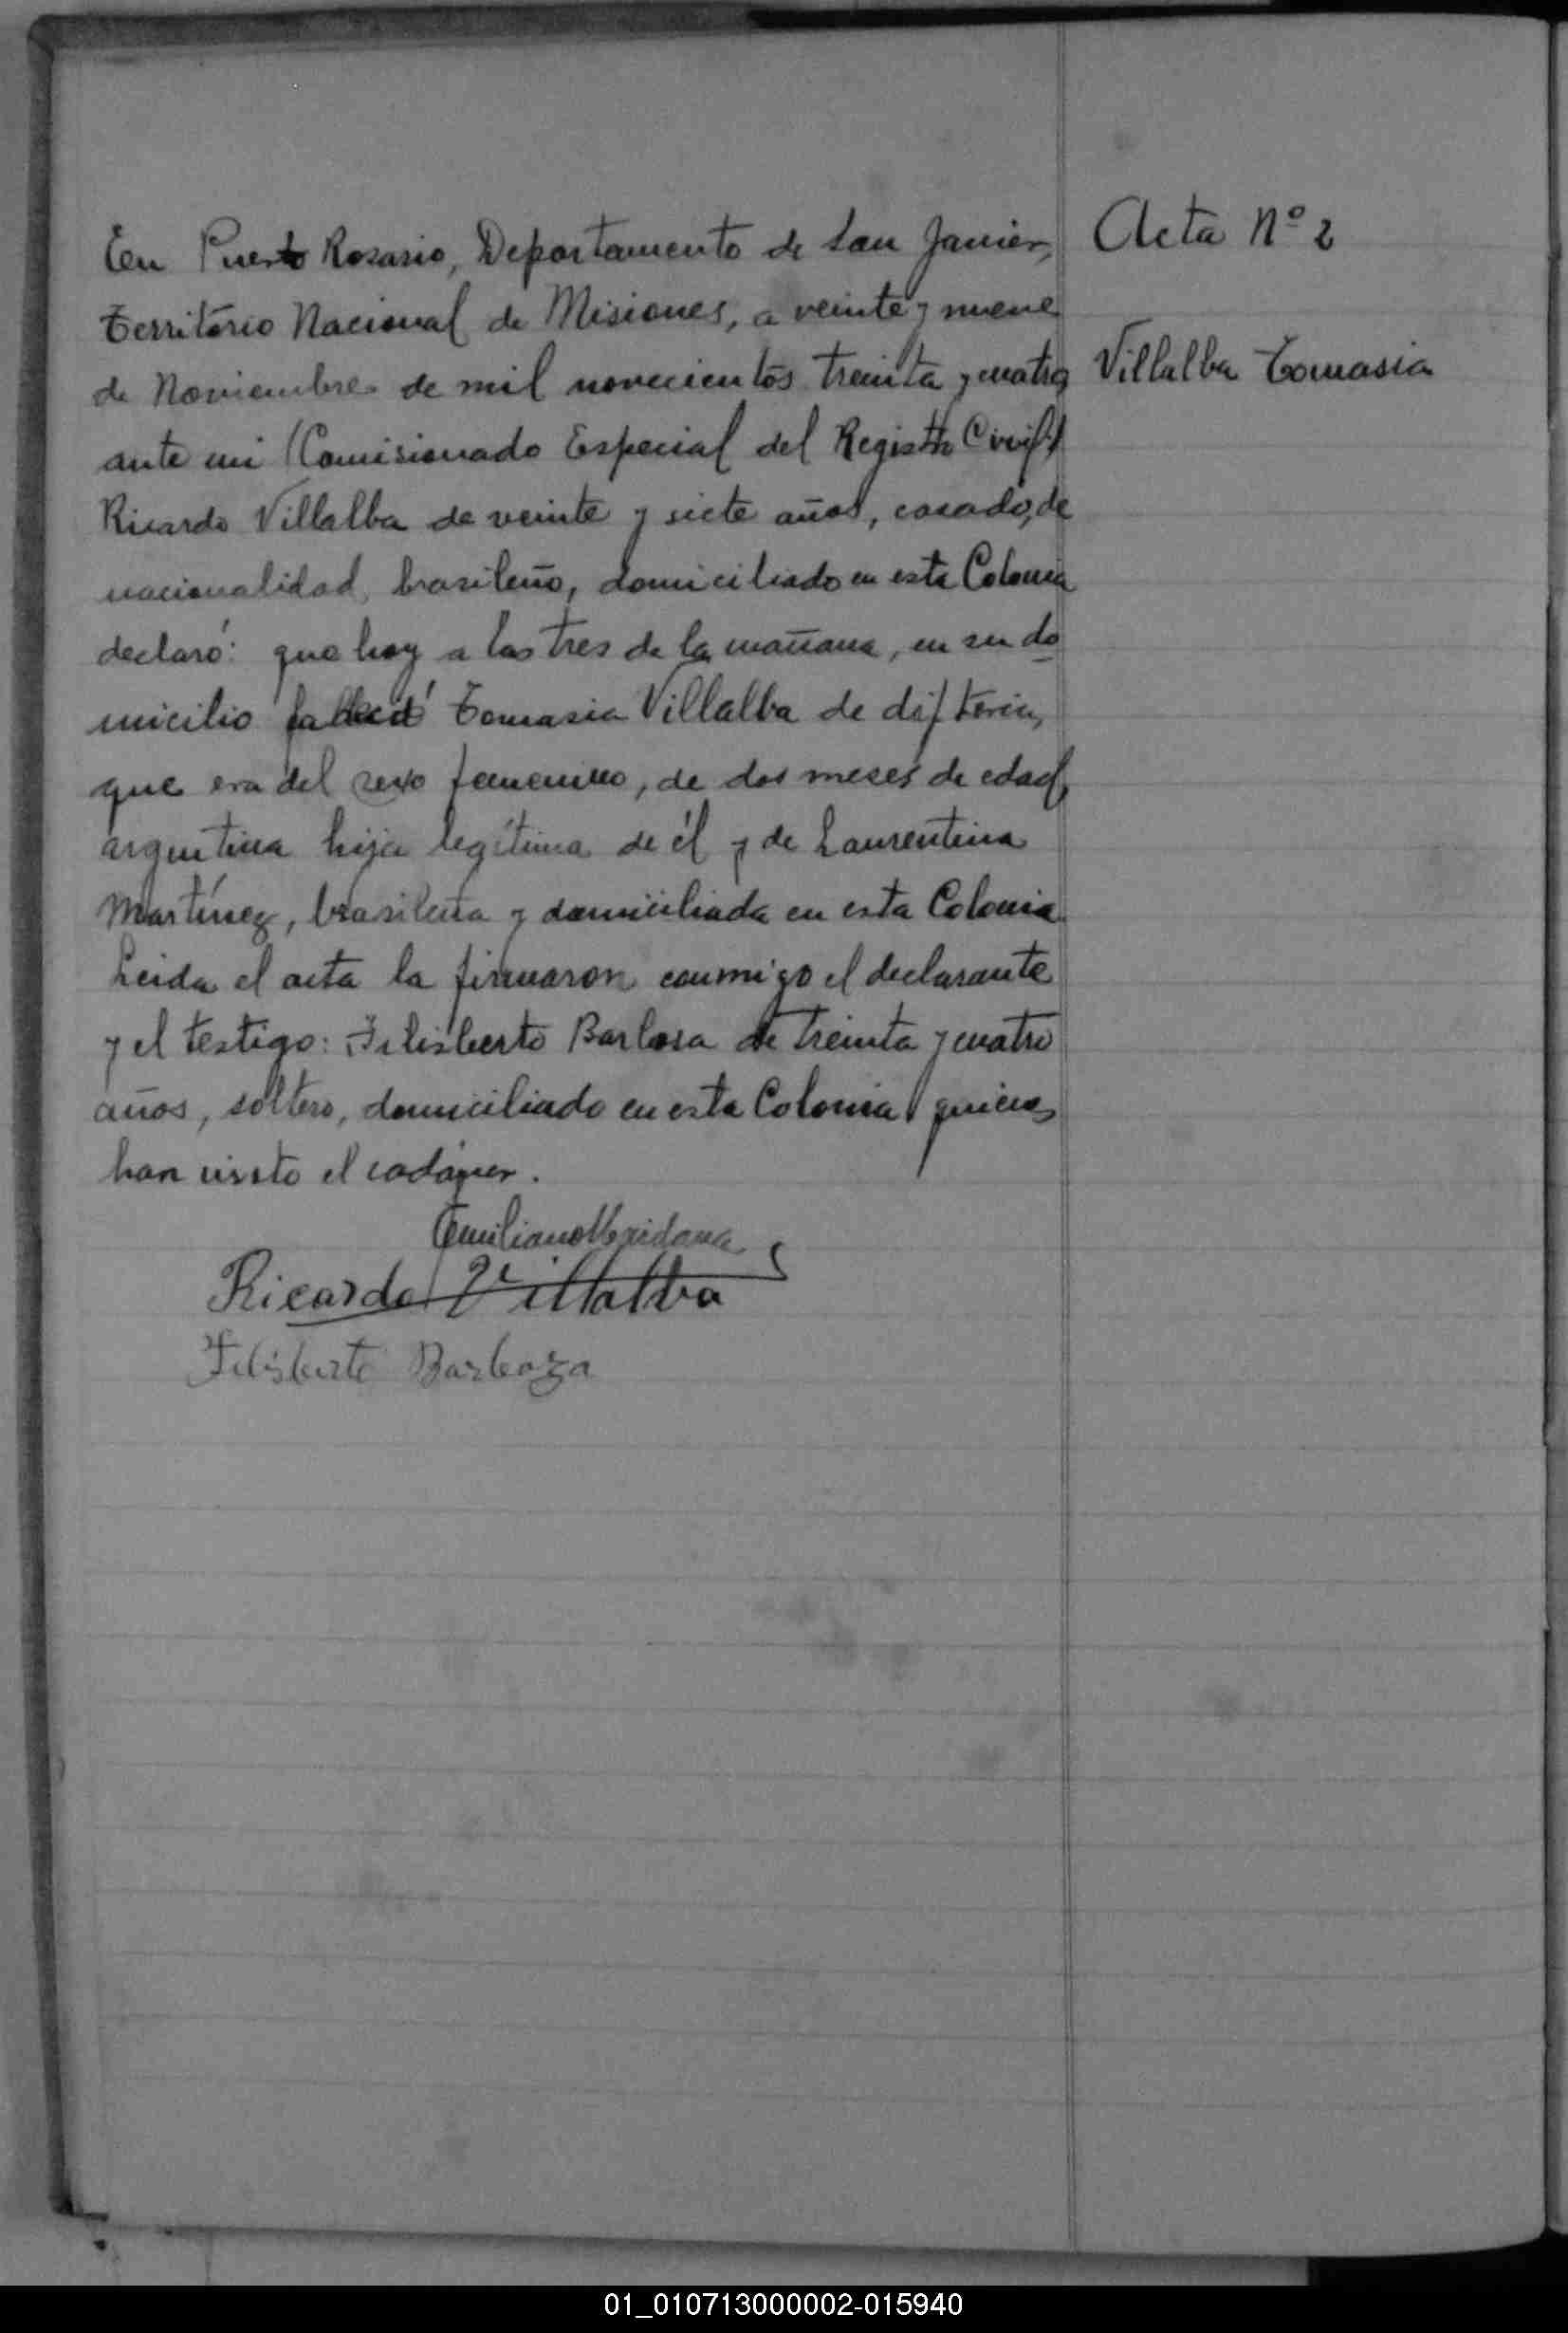 Acta Nº 2
Villalba Tomasia
En Puerto Rosario, Departamento de San Javier,
Territorio Nacional de Misiones, a veinte y nueve
de Noviembre de mil novecientos treinta y cuatro
ante mi (Comisionado Especial del Registro Civil)
Ricardo Villalba de veinte y siete años, casado, de
nacionalidad brasileño, domiciliado en esta Colonia
declaró: que hoy a las tres de la mañana, en su do
micilio falleció Tomasia Villalba de difteria,
que era del sexo femenino, de dos meses de edad,
argentina hija legítima de él y de Laurentina
Martínez, brasileña y domiciliada en esta Colonia.
Leida el acta la firmaron conmigo el declarante
y el testigo: Filisberto Barbosa de treinta y cuatro
años, soltero, domiciliado en esta Colonia quienes
han visto el cadáver.
Emiliano
Ricardo Villalba
Filisberto Barboza
01_010713000002-015940